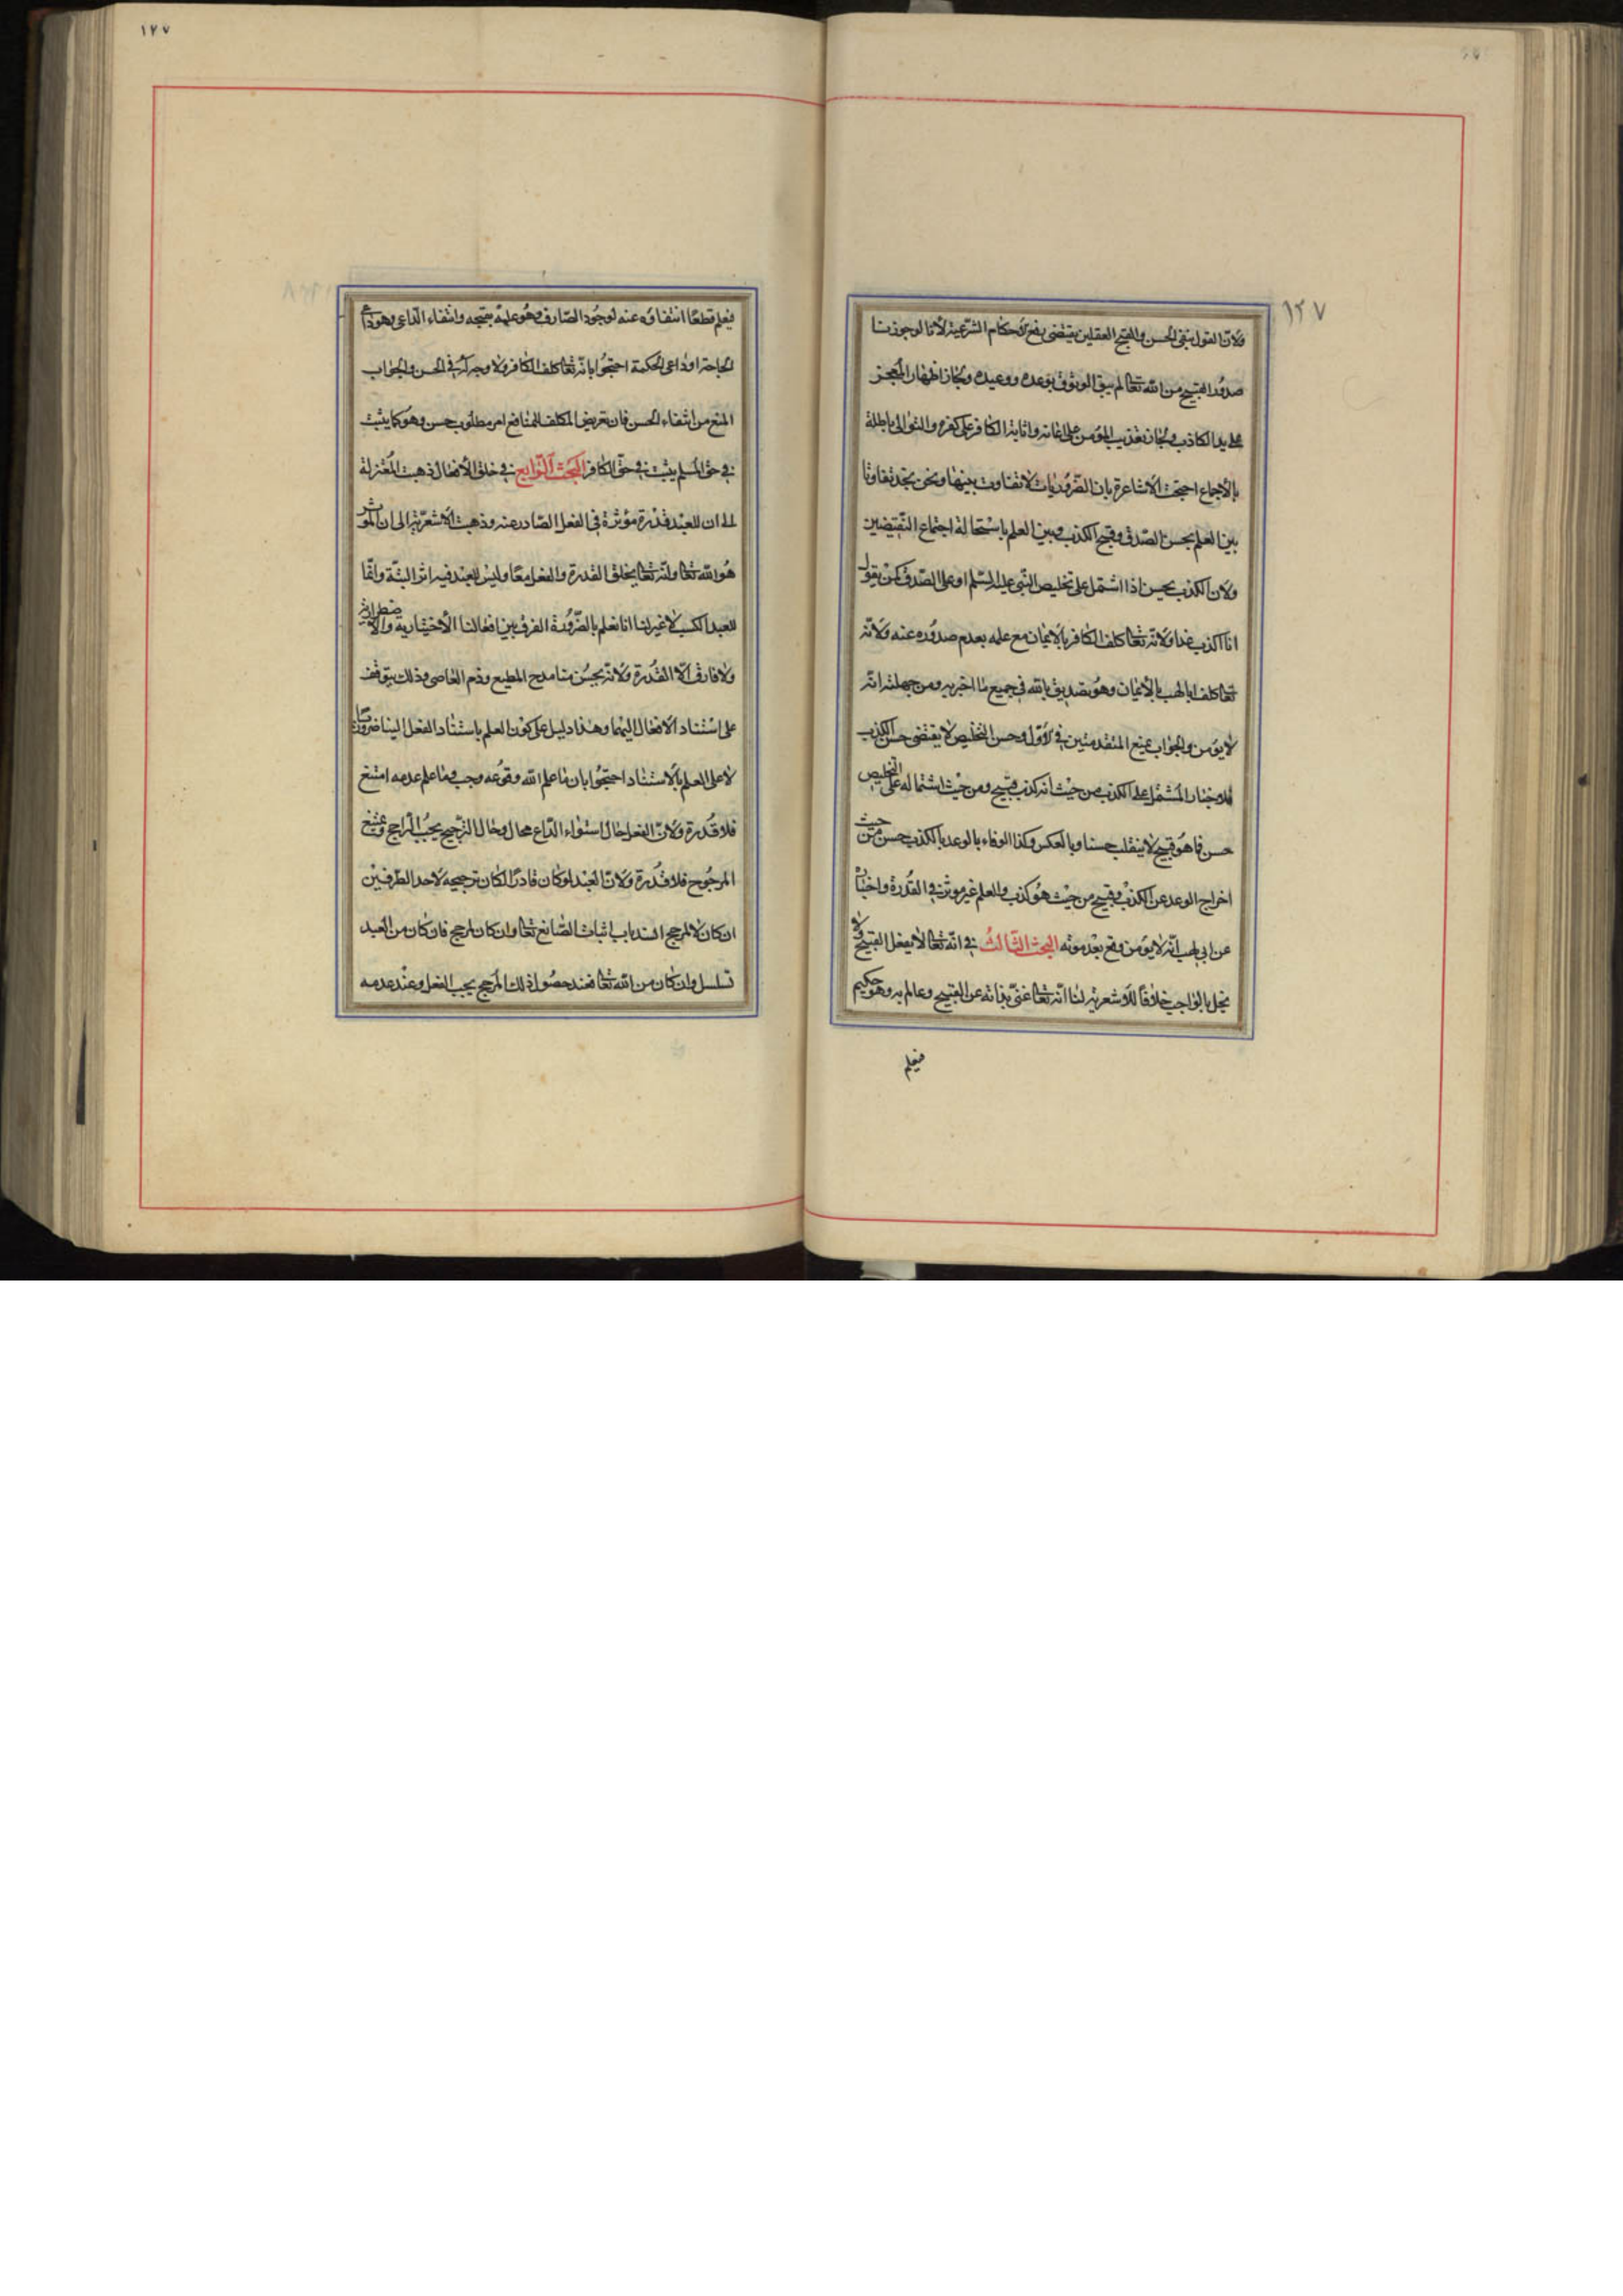 ١٢٧
ولان القول بنفى الحسن والقبح العقلين يقتضى رفع الاحكام الشرعية لانا لو جوزنا
صدور القبيح من الله تعالى لم يبق الوثوق بوعده ووعيده ولجاز اظهار المعجز
على يد الكاذب ولجاز تعذيب المؤمن على ايمانه واثابة الكافر على كفره والتوالى باطلة
بالاجماع احتجت الاشاعرة بان الضروريات لا تفاوت بينها ونحن نجد تفاوتا
بين العلم بحسن الصدق وقبح الكذب وبين العلم باستحالة اجتماع النقيضين
ولان الكذب يحسن اذا اشتمل على تخليص النبى عليه السلم او على الصدق كمن يقول
انا اكذب غدا ولانه تعالى كلف الكافر بالايمان مع علمه بعدم صدوره عنه ولانه
تعالى كلف ابا لهب بالايمان وهو تصديق بالله فى جميع ما اخبر به ومن جملته انه
لا يؤمن والجواب بمنع المتقدمتين فى الاول وحسن التخليص لا يقتضى حسن الكذب
للاخبار المشتمل على الكذب من حيث انه كذب قبيح ومن حيث اشتماله على التخليص
حسن فما هو قبيح لا ينقلب حسنا وبالعكس وكذا الوفاء بالوعد بالكذب حسن من حيث
اخراج الوعد عن الكذب وقبيح من حيث هو كذب والعلم غير موثر فى القدرة واخباره
عن ابى لهب انه لا يؤمن وقع بعد موته البحث الثالث فى انه تعالى لا يفعل القبيح ولا
يخل بالواجب خلافا للاشعرية لنا انه تعالى غنى بذاته عن القبيح وعالم به وهو حكيم
فيعلم
١٢٧
فيعلم قطعا انتفاؤه عنه لوجود الصارف وهو علمه بقبحه وانتفاء الداعى وهو داعى
الحاجة او داعى الحكمة احتجوا بانه تعالى كلف الكافر ولا وجه له فى الحسن والجواب
المنع من انتفاء الحسن فان تعريض المكلف للمنافع امر مطلوب حسن وهو كما يثبت
فى حق المسلم يثبت فى حق الكافر البحث الرابع فى خلق الافعال ذهبت المعتزلة
الى ان للعبد قدرة مؤثرة فى الفعل الصادر عنه وذهبت الاشعرية الى ان الموثر
هو الله تعالى وانه تعالى يخلق القدرة والفعل معا وليس للعبد فيه اثر البتة وانما
للعبد الكسب لا غير لنا انا نعلم بالضرورة الفرق بين افعالنا الاختيارية والاضطرارية
ولا فارق الا القدرة ولانه يحسن منا مدح المطيع وذم العاصى وذلك يتوقف
على استناد الافعال اليهما وهذا دليل على كون العلم باستناد الفعل الينا ضروريا
لا على العلم بالاستناد احتجوا بان ما علم الله وقوعه وجب وما علم عدمه امتنع
فلا قدرة ولان الفعل حال استواء الداع محال وحال الترجيح يجب الراجح ويمتنع
المرجوح فلا قدرة ولان العبد لو كان قادرا لكان ترجيحه لاحد الطرفين
ان كان لا لمرجح انسد باب اثبات الصانع تعالى وان كان لمرجح فان كان من العبد
تسلسل وان كان من الله تعالى فعند حصول ذلك المرجح يجب الفعل وعند عدمه